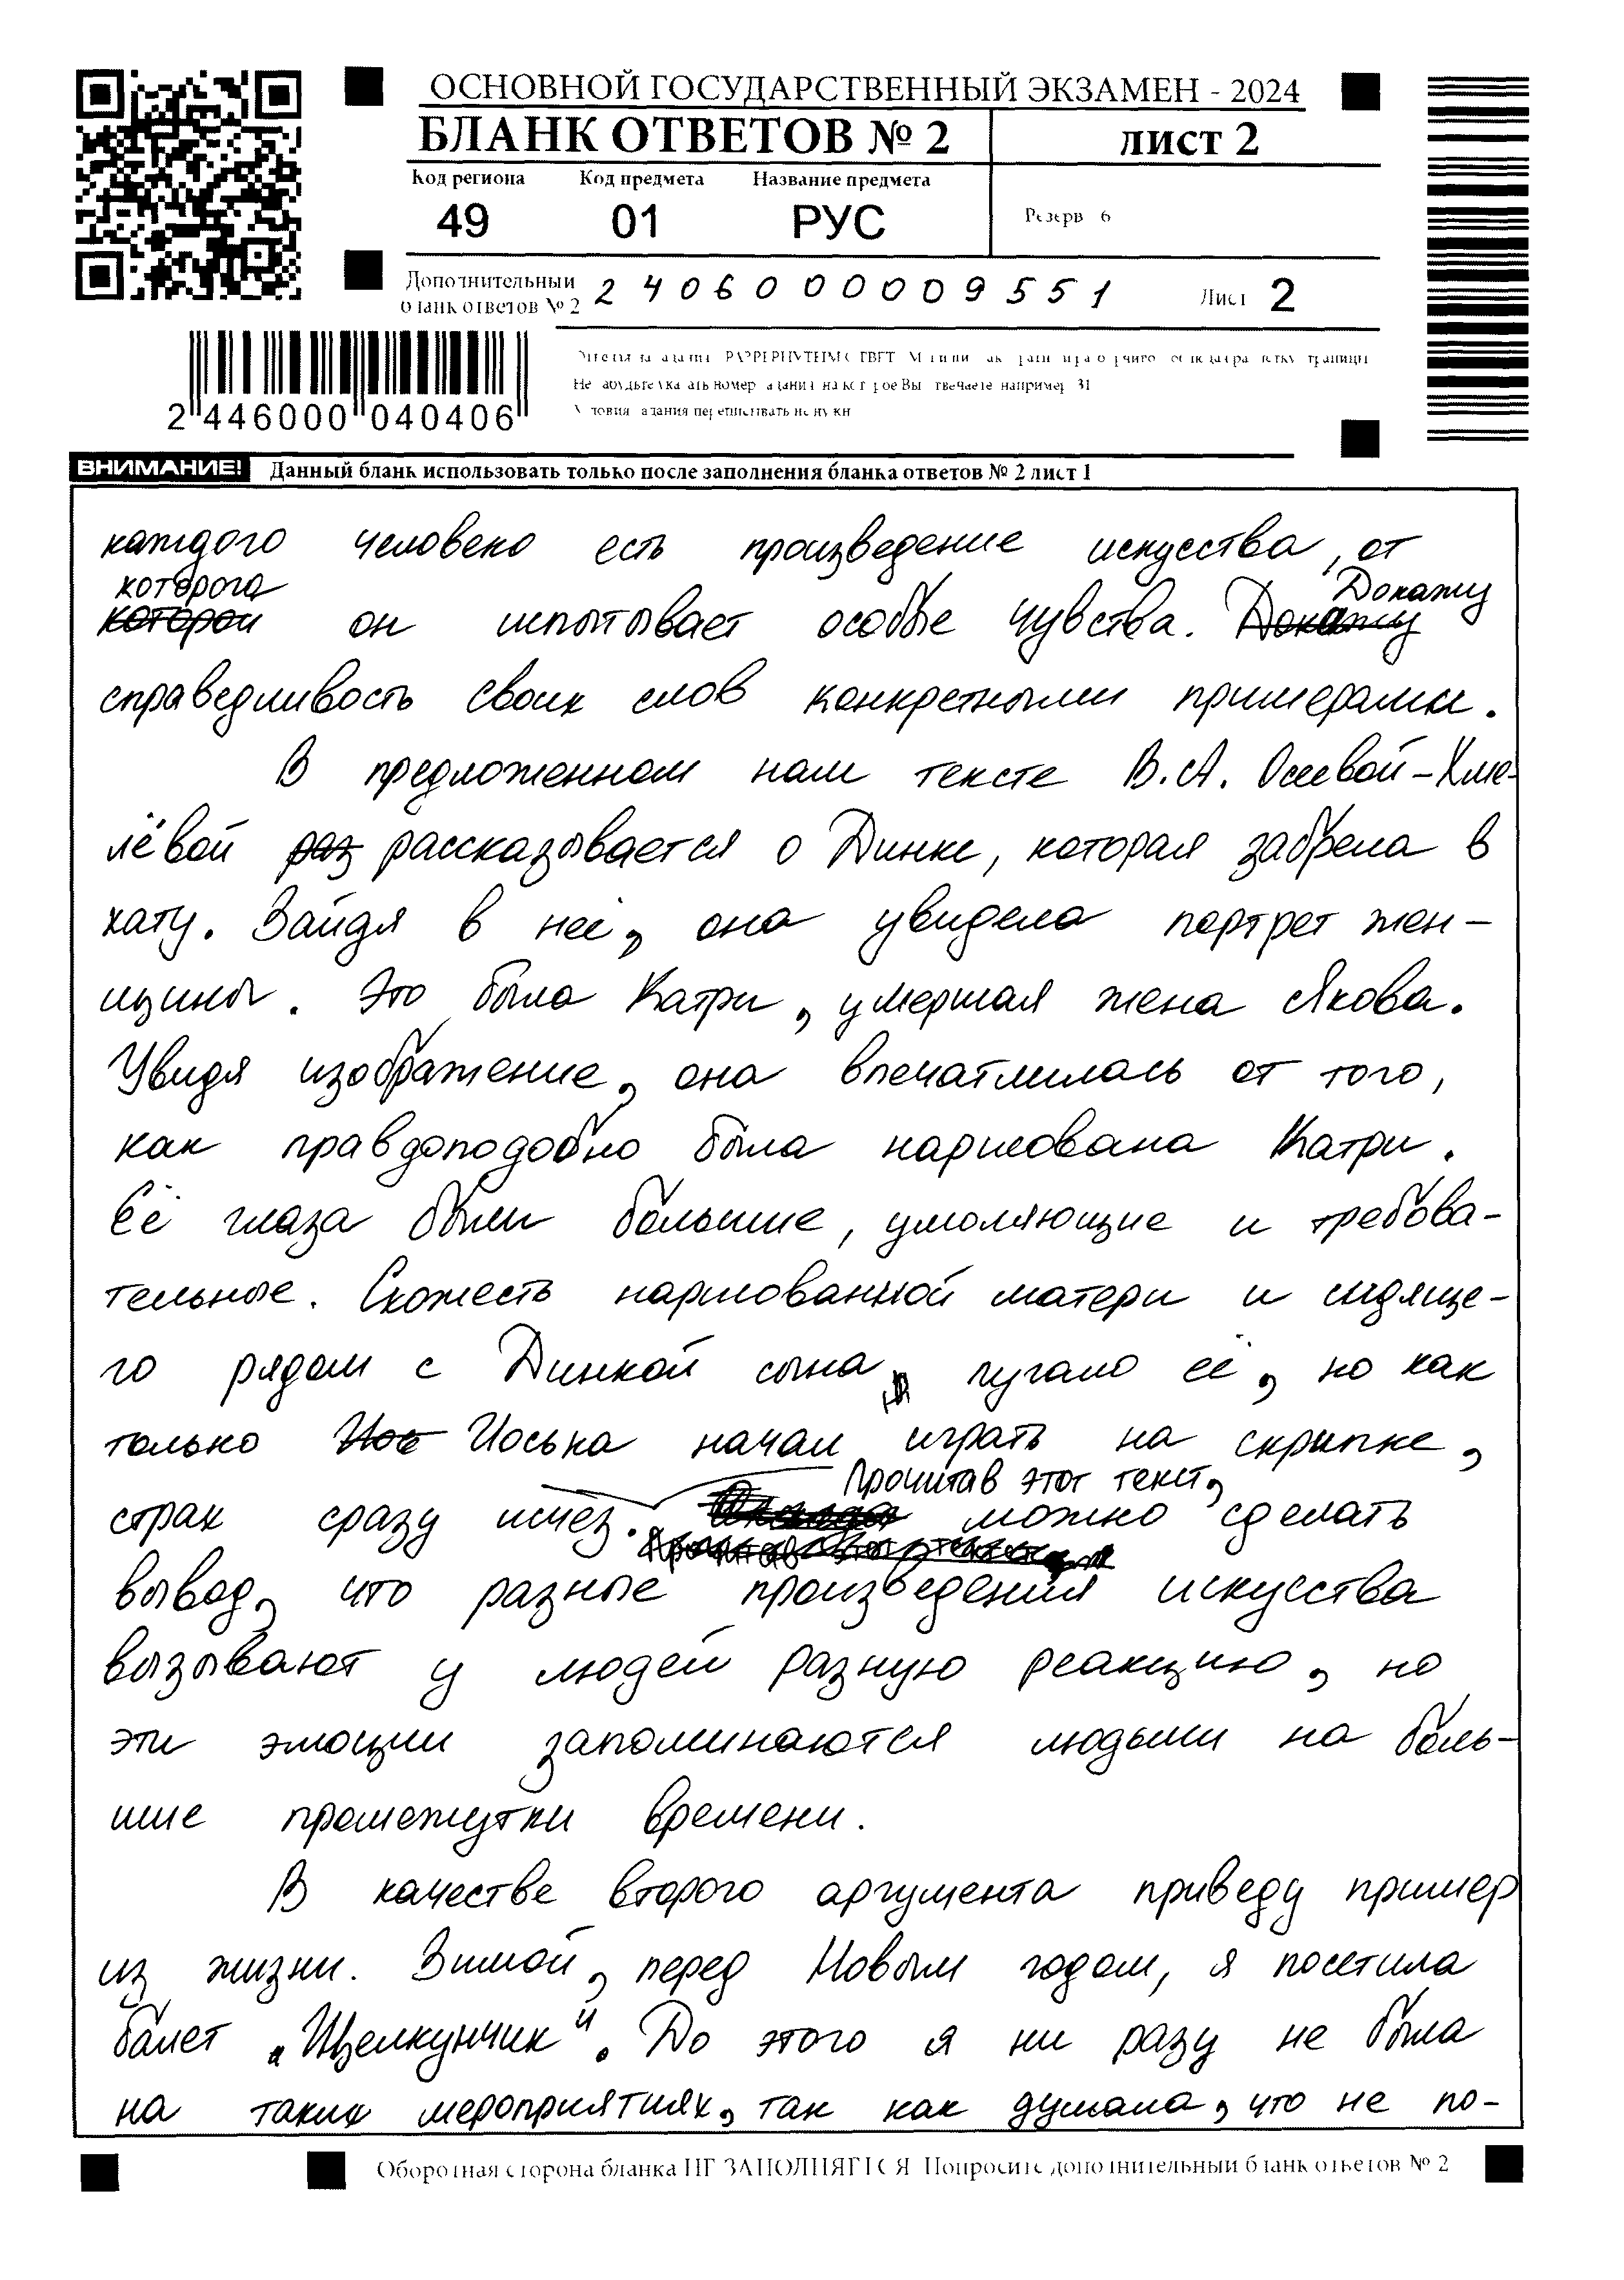 ОСНОВНОЙ ГОСУДАРСТВЕННЫЙ ЭКЗАМЕН - 2024
БЛАНК ОТВЕТОВ № 2
ЛИСТ 2
Код региона Код предмета Название предмета
49 01 РУС
Резерв 6
Дополнительный
бланк ответов № 2
2406000009551
Лист 2
2 446000 040406
Условия задания переписывать не нужно
ВНИМАНИЕ! Данный бланк использовать только после заполнения бланка ответов № 2 лист 1
каждого человека есть произведение искусства, от
которого
которои он испытывает особые чувства. Докажу
Докажу
справедливость своих слов конкретными примерами.
В предложенном нам тексте В.А. Осеевой-Хме-
лёвой раз рассказывается о Динке, которая забрела в
хату. Зайдя в неё, она увидела портрет жен-
щины. Это была Катри, умершая жена Якова.
Увидя изображение, она впечатлилась от того,
как правдоподобно была нарисована Катри.
Её глаза были большие, умоляющие и требова-
тельные. Схожесть нарисованной матери и сидяще-
го рядом с Динкой сына, пугало её, но как
только Иос Иоська начал играть на скрипке,
Прочитав этот текст,
страх сразу исчез. можно сделать
вывод, что разные произведения искусства
вызывают у людей разную реакцию, но
эти эмоции запоминаются людьми на боль-
шие промежутки времени.
В качестве второго аргумента приведу пример
из жизни. Зимой, перед Новым годом, я посетила
балет „Щелкунчик“. До этого я ни разу не была
на таких мероприятиях, так как думала, что не по-
Оборотная сторона бланка НЕ ЗАПОЛНЯЕТСЯ Попросите дополнительный бланк ответов № 2